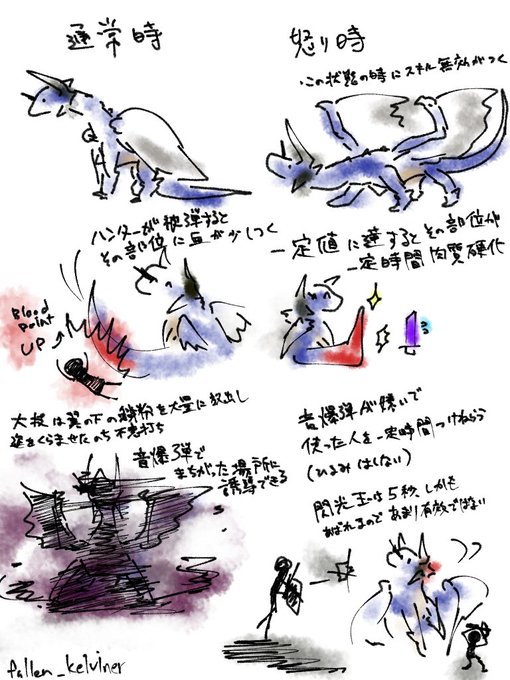 通常時
怒り時
・この状態の時にスキル無効がつく
ハンターが被弾すると
その部位に血が少しつく
一定値に達するとその部位が
一定時間肉質硬化
Blood
Point
UP
大技は翼の下の鱗粉を大量に放出し
姿をくらませたのち不意打ち
音爆弾で
まちがった場所に
誘導できる
音爆弾が嫌いで
使った人を一定時間つけねらう
(ひるみはしない)
閃光玉は5秒、しかも
あばれまわるので あまり有効ではない
fallen_kelviner